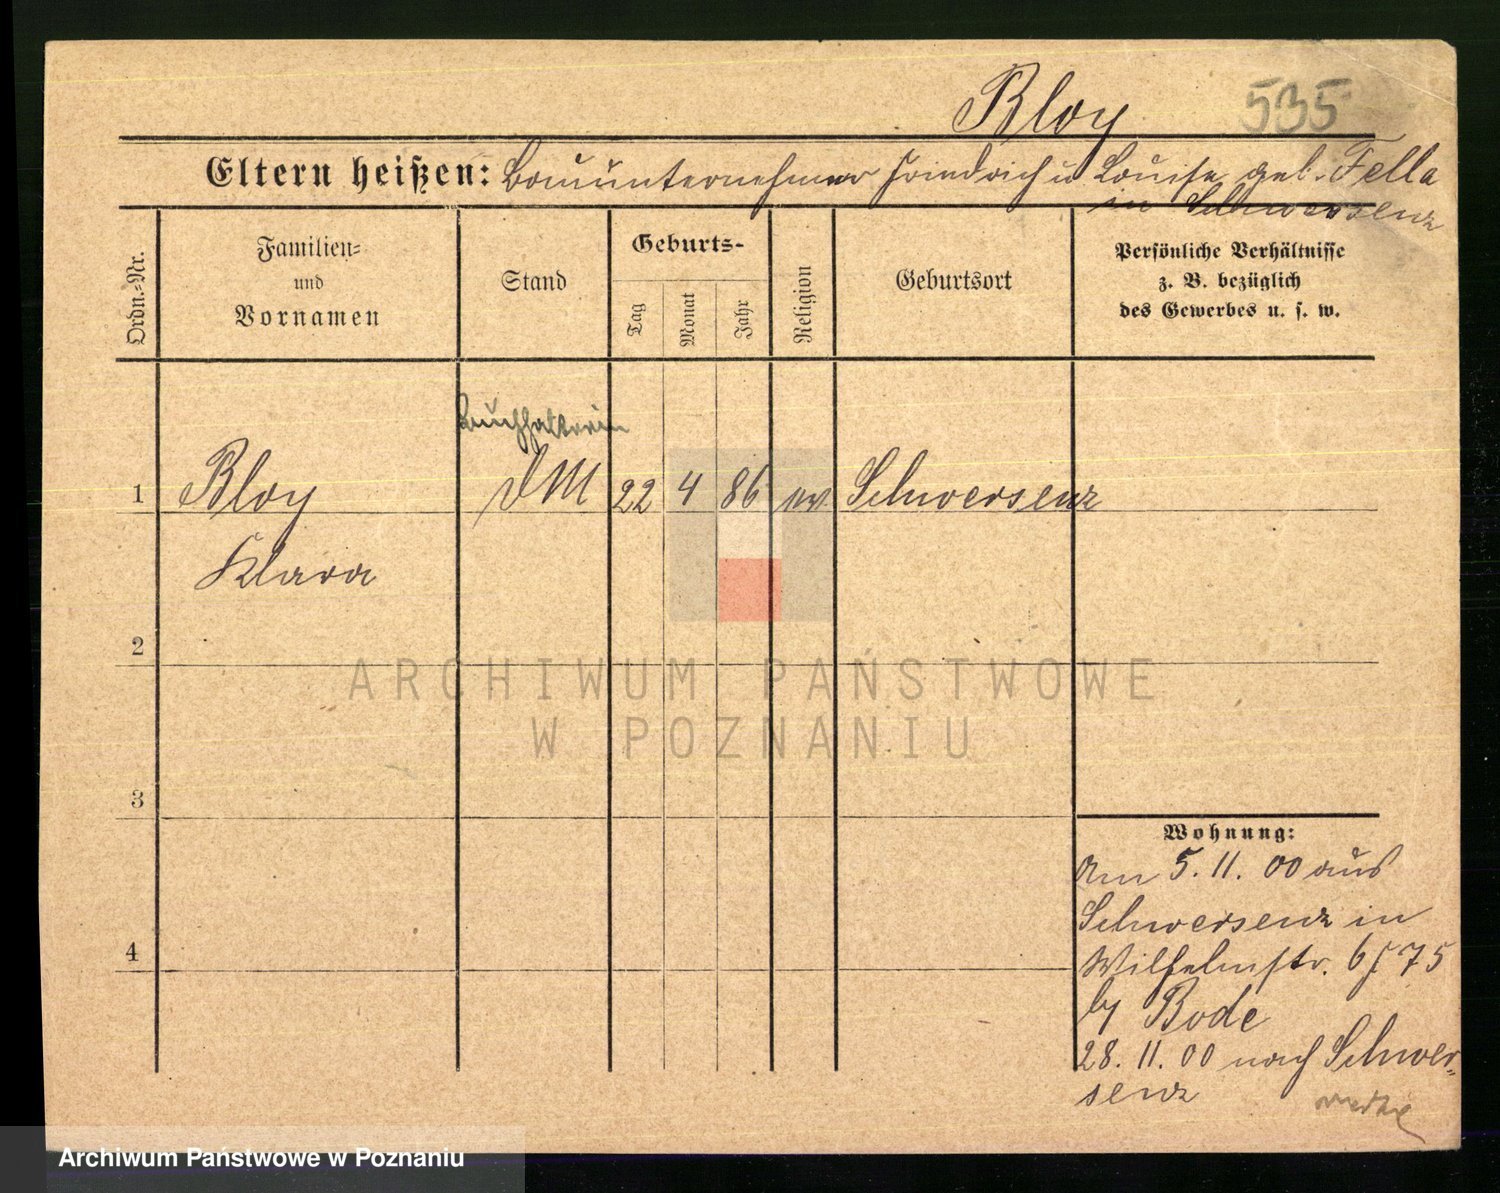 Bloy 535
Eltern heißen: Bauunternehmer Friedrich u Louise geb. Fella
in Schwersenz
Ordn.-Nr.
Familien=
und
Vornamen
Stand
Geburts-
Tag
Monat
Jahr
Religion
Geburtsort
Persönliche Verhältnisse
z. B. bezüglich
des Gewerbes u. s. w.
Buchhalterin
1 Bloy DM 22 4 86 ev. Schwersenz
Klara
2
3
4
Wohnung:
Am 5.11.00 aus
Schwersenz in
Wilhelmstr. 6 75
by Bode
28.11.00 nach Schwer=
senz
ARCHIWUM PAŃSTWOWE
W POZNANIU
Archiwum Państwowe w Poznaniu